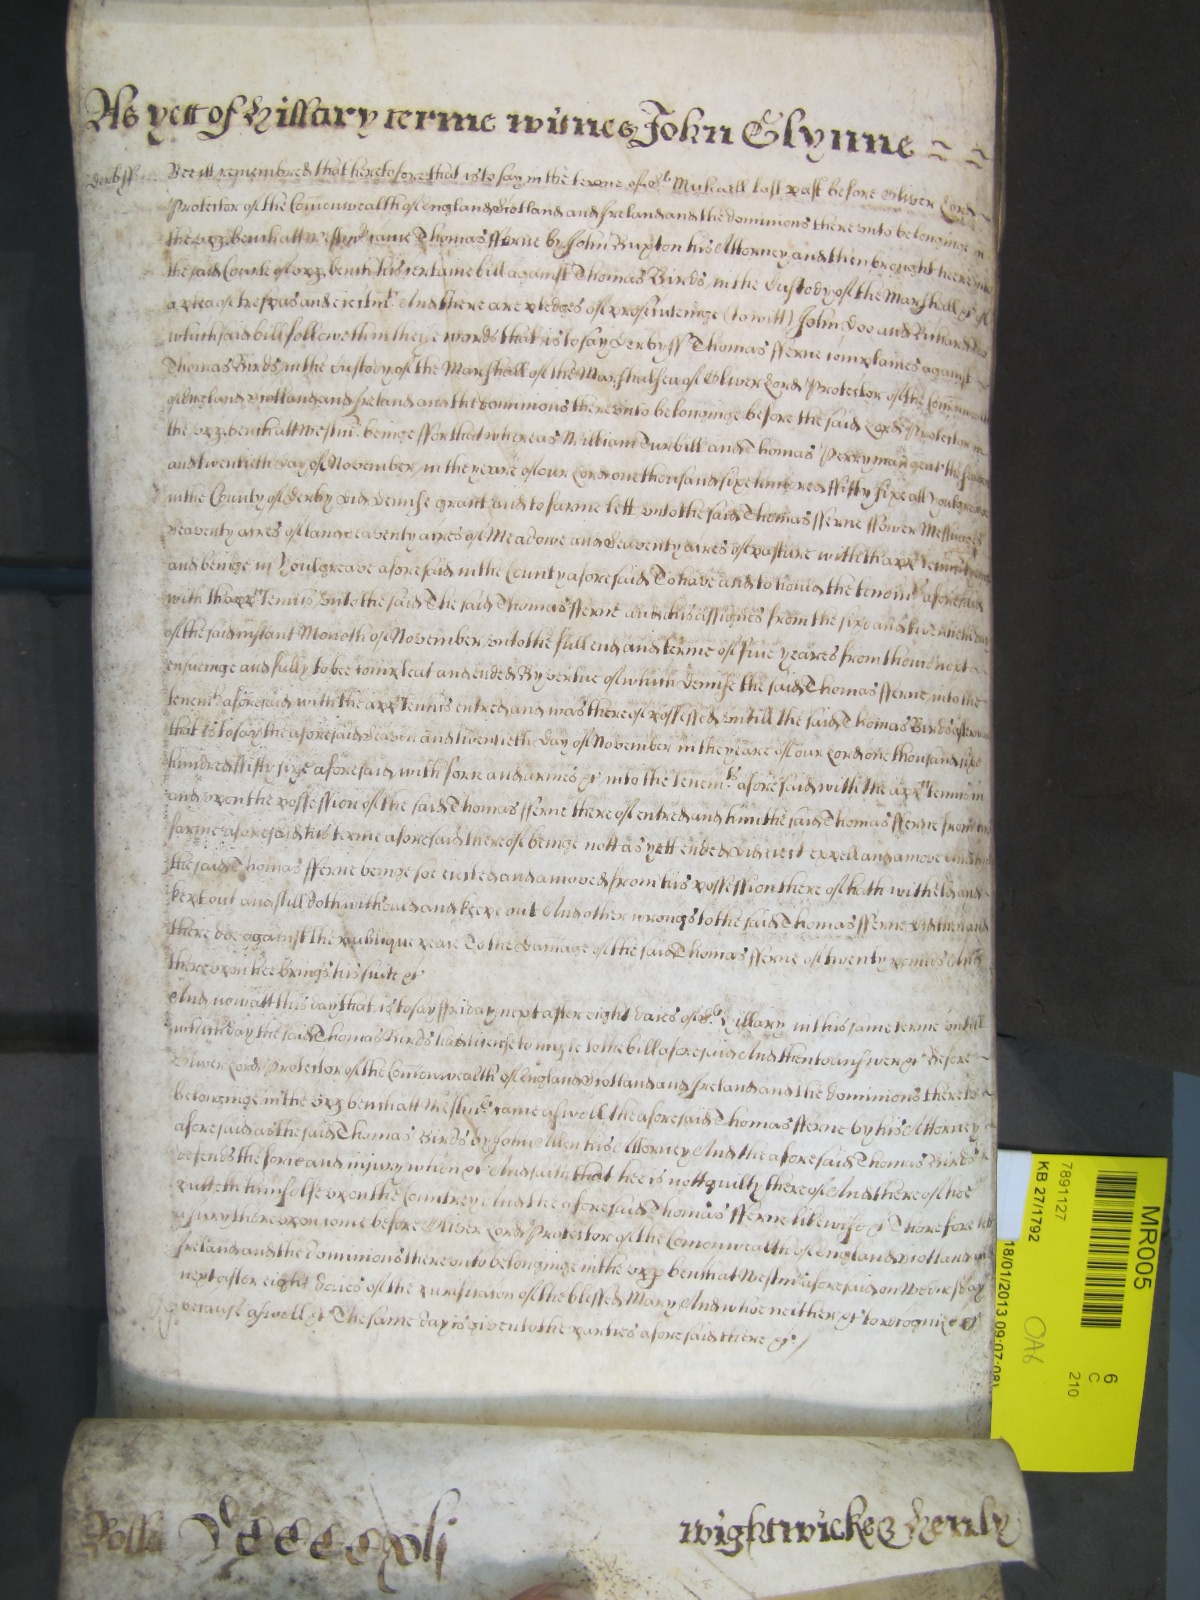 As yett of Hillary terme witnes John Glynne
Derb ss Bee itt remembred that heretofore that is to say in the terme of St Michaell last past before Oliver Lord
Protector of the Comonwealth of England Scotland and Ireland and the dominions there unto belonginge in
the upp bench att Westmr came Thomas fferne by John Buxton his Attorney and then brought heere into
the said Courte of upp bench his certaine bill against Thomas Birds in the Custody of the Marshall &c of
a plea of trespas and eiectmt And there are pledges of prosecuteinge (to witt) John Doo and Richard Roo
which said bill followeth in theise words that is to say Derby ss Thomas fferne complaines against
Thomas Birds in the Custody of the Marshall of the Marshalsea of Oliver Lord Protector of the Comonwealth
of England Scotland and Ireland and the dominions there unto belonginge before the said Lord Protector in
the upp bench att Westmr beinge ffor that whereas William Turbill and Thomas Perryman gent the
and twentieth day of November in the yeare of our Lord one thousand sixe hundred ffifty sixe att Youlgreave
in the County of Derby did demise grant and to farme lett unto the said Thomas fferne ffower Messuages
seaventy acres of land seaventy acres of Meadowe and seaventy acres of pasture with thapptennces
and beinge in Youlgreave aforesaid in the County aforesaid To have and to hould the tenemts aforesaid
with thapptennces unto the said The said Thomas fferne and his assignes from the sixe and twentieth day
of the said instant Moneth of November unto the full end and terme of five yeares from thence next
ensueinge and fully to bee compleat and ended By vertue of which demise the said Thomas fferne into the
tenemts aforesaid with the apptennces entred and was thereof possessed untill the said Thomas Birds afterwards
that is to say the aforesaid seaven and twentieth day of November in the yeare of our Lord one thousand sixe
hundred ffifty sixe aforesaid with force and armes &c into the tenemts aforesaid with the apptennces in
and upon the possession of the said Thomas fferne there of entred and him the said Thomas fferne from his
farme aforesaid his terme aforesaid thereof beinge nott as yett ended did eiect expell and amove And
the said Thomas fferne beinge soe eiected and amoved from his possession there of hath witheld and
kept out and still doth withould and keepe out And other wrongs to the said Thomas fferne did then and
there doe against the publique peace To the damage of the said Thomas fferne of twenty pounds And
thereupon hee brings his suite &c
And now att this day that is to say ffriday next after eight daies of St Hillary in this same terme untill
which day the said Thomas Birds had licence to imple to the bill aforesaid And then to answer &c Before
Oliver Lord Protector of the Comonwealth of England Scotland and Ireland and the dominions thereto
belonginge in the upp bench att Westmr came aswell the aforesaid Thomas fferne by his Attorney
aforesaid as the said Thomas Birds by John Allen his Attorney And the aforesaid Thomas Birds
defends the force and iniury when &c And saith that hee is nott guilty thereof And thereof hee
putteth himselfe upon the Countrey And the aforesaid Thomas fferne likewise &c Therefore lett
a iury thereupon come before Oliver Lord Protector of the Comonwealth of England Scotland and
Ireland and the dominions there unto belonginge in the upp bench at Westmr aforesaid on Wednesday
next after eight daies of the purificacon of the blessed Mary And whoe neither &c to recognize &c
because aswell &c The same day is given to the parties aforesaid there &c
Rolls
wightwicke & Henly
MR005
7891127
KB 27/1792
18/01/2013 09:07:08
OA6
6
C
210